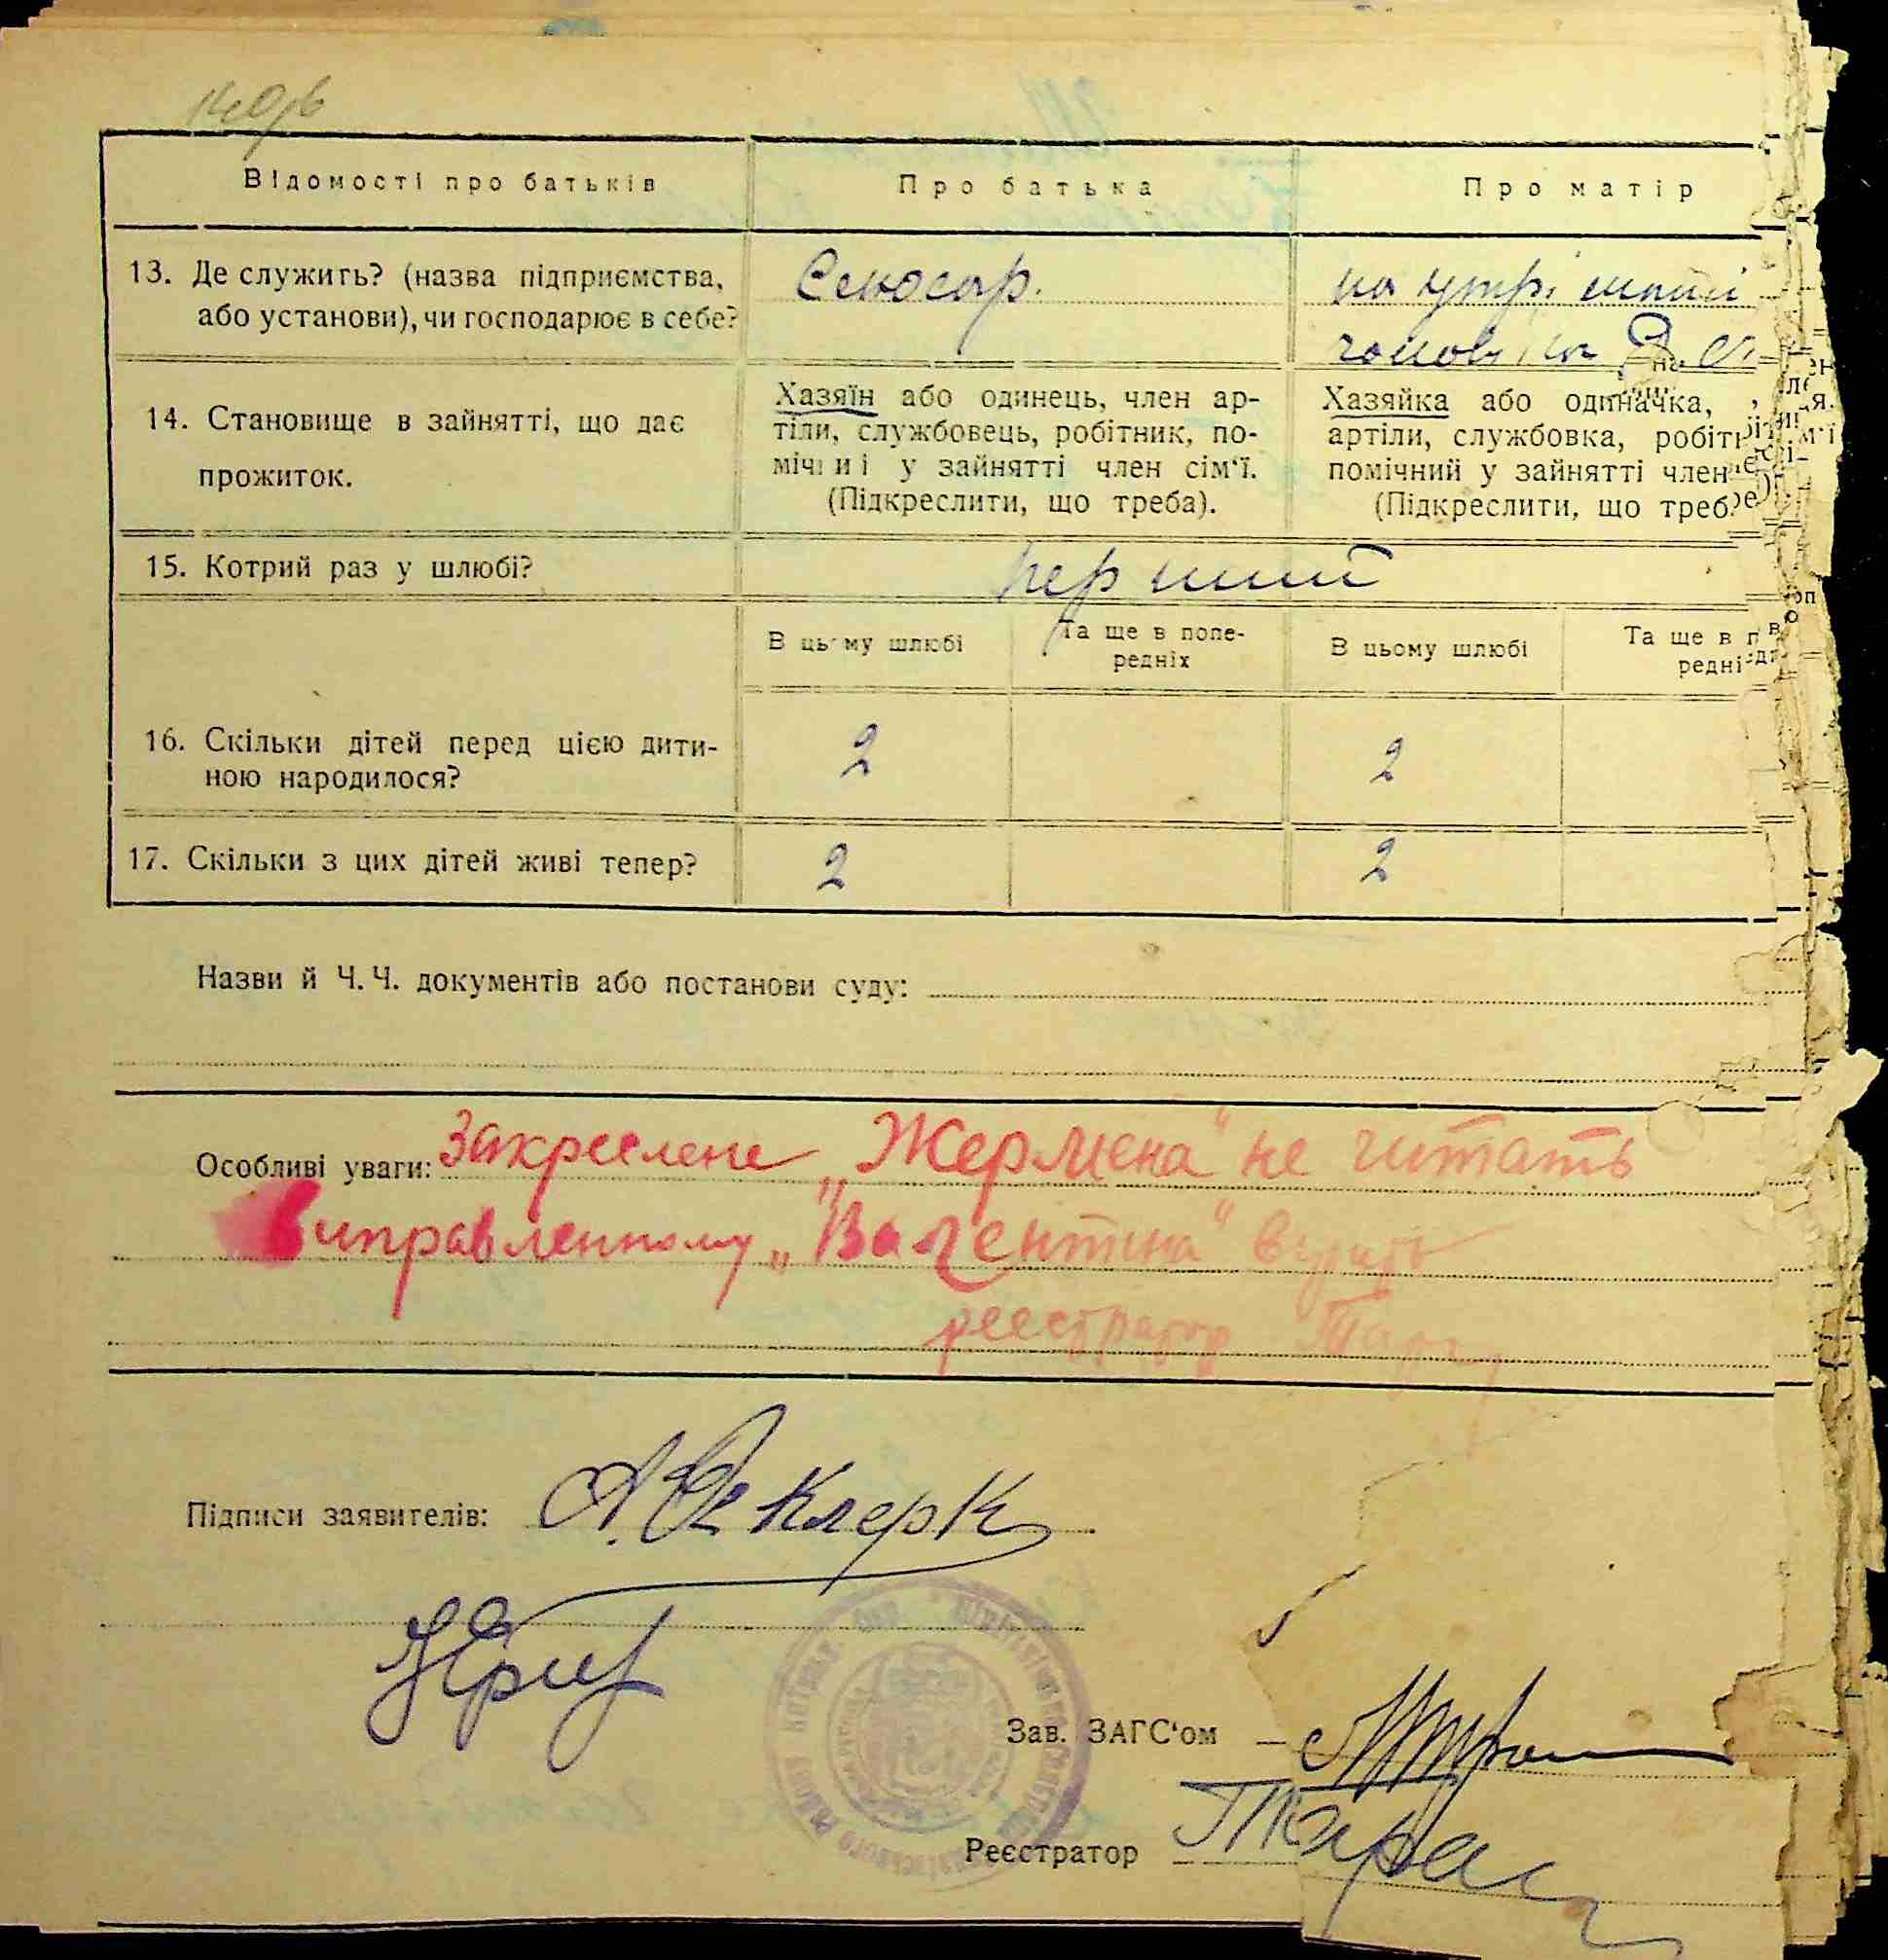 Відомості про батьків
Про батька
Про матір
13. Де служить? (назва підприємства, або установи), чи господарює в себе?
на утрі
14. Становище в зайнятті, що дає прожиток.
Хазяїн або одинець, член ар-
тіли, службовець, робітник, по-
міч и і у зайнятті член сім‘ї.
(Підкреслити, що треба).
Хазяйка або одиначка,
артіли, службовка, робіт
помічний у зайнятті член
(Підкреслити, що треб
15. Котрий раз у шлюбі?
перший
В цьому шлюбі
Та ще в попе-
редніх
В цьому шлюбі
Та ще в п
редні
16. Скільки дітей перед цією дити-
ною народилося?
2
2
17. Скільки з цих дітей живі тепер?
2
2
Назви й Ч. Ч. документів або постанови суду:
Особливі уваги: Закреслене „Жермена“ не читать
виправленному „Валентина“ вірить
реєстратор Таран
Підписи заявителів: А. Деклерк
Зав. ЗАГС‘ом
Реєстратор Таран